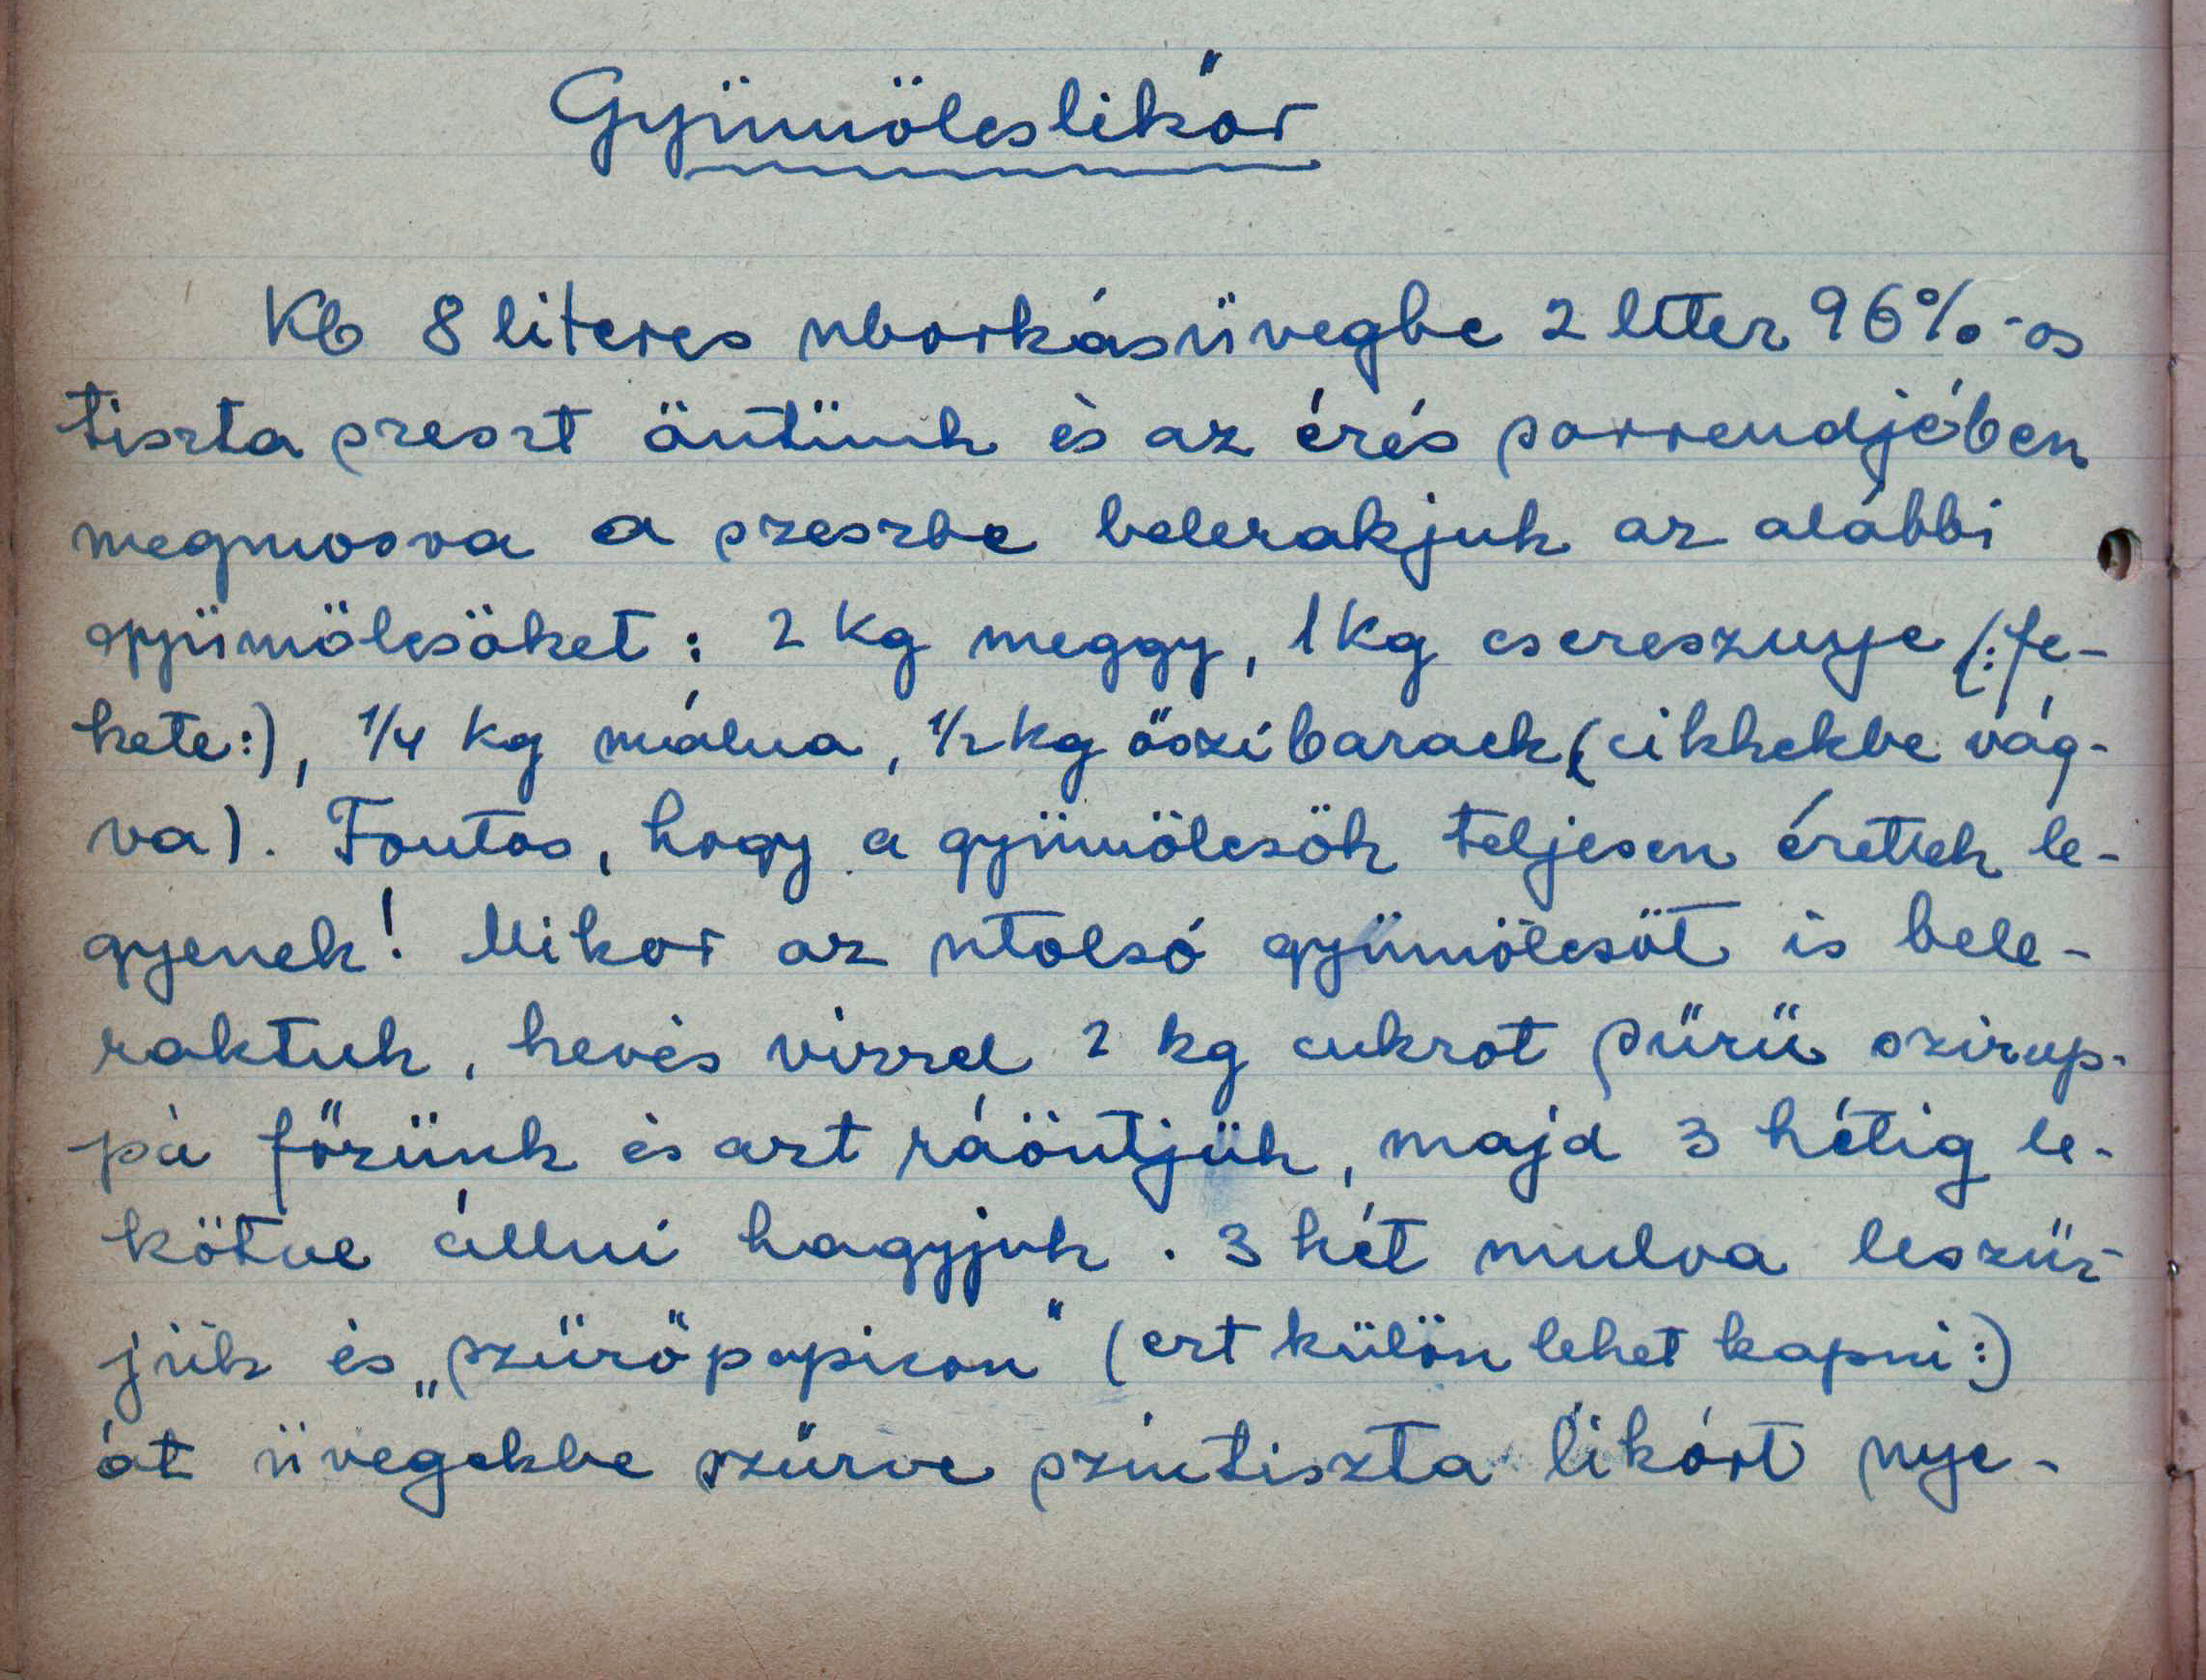 Gyümölcslikőr
Kb 8 literes uborkásüvegbe 2 liter 96%-os
tiszta szeszt öntünk és az érés sorrendjében
megmosva a szeszbe belerakjuk az alábbi
gyümölcsöket: 2 kg meggy, 1 kg cseresznye (:fe-
kete:), 1/4 kg málna, 1/2 kg őszibarack (cikkekbe vág-
va). Fontos, hogy a gyümölcsök teljesen érettek le-
gyenek! Mikor az utolsó gyümölcsöt is bele-
raktuk, kevés vizzel 2 kg cukrot sűrü szirup-
pá főzünk és azt ráöntjük, majd 3 hétig le-
kötve állni hagyjuk. 3 hét mulva leszür-
jük és „szűrőpapiron" (ezt külön lehet kapni:)
át üvegekbe szűrve színtiszta likőrt nye-